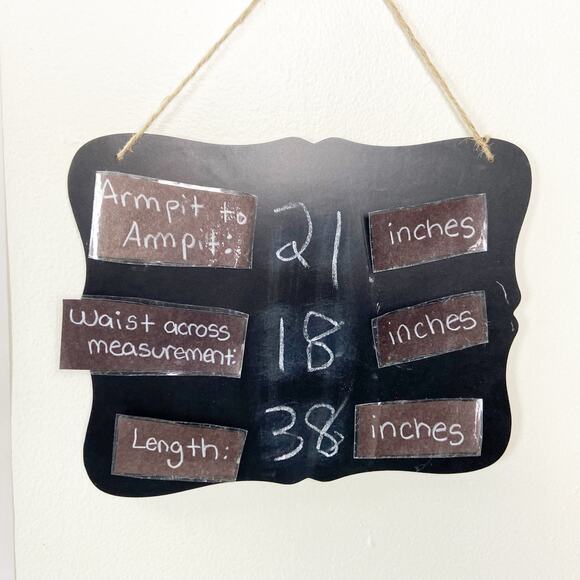 Armpit to
Armpit: 21 inches
Waist across
measurement: 18 inches
Length: 38 inches